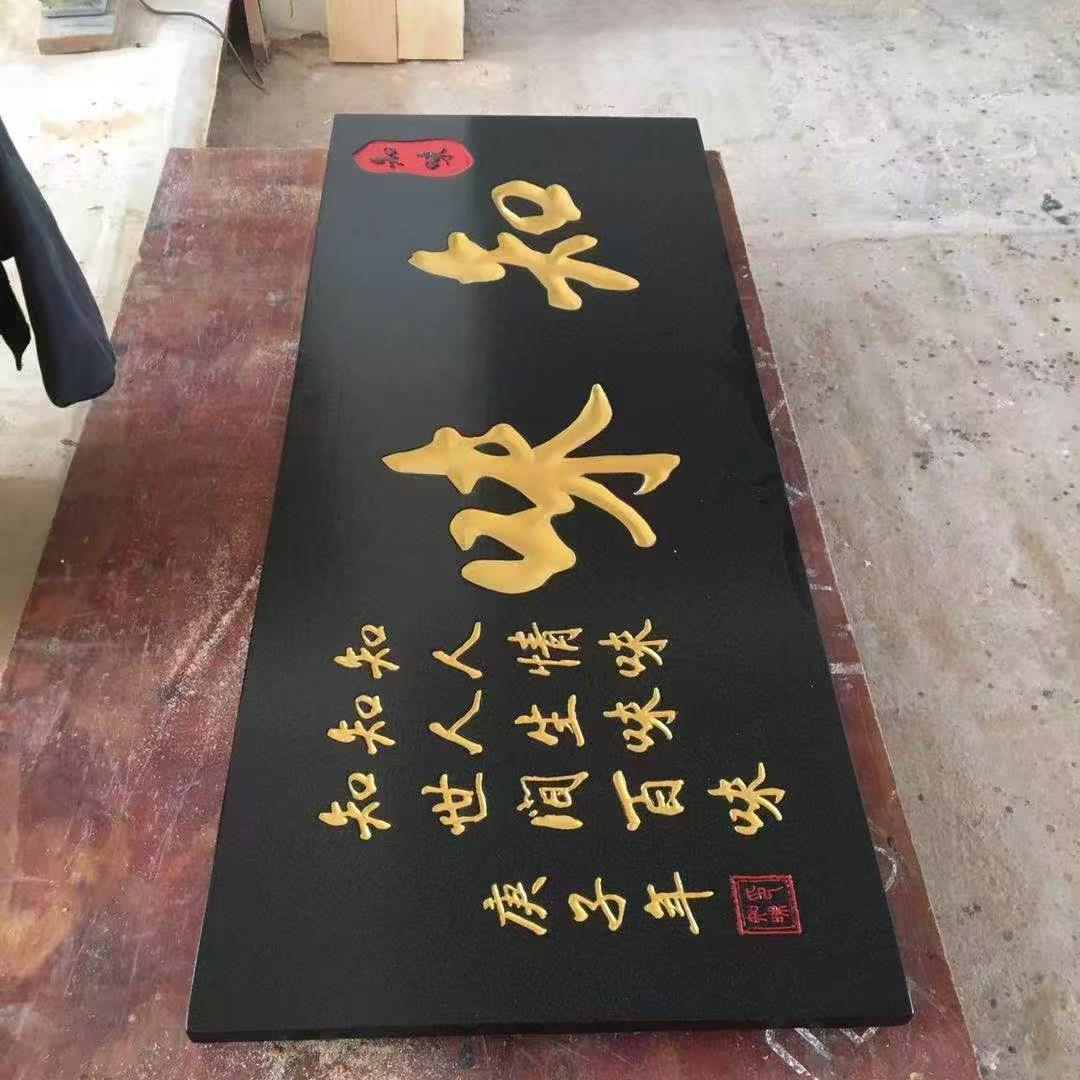 知味
知味
知人情味
知人生味
知世间百味
庚子年